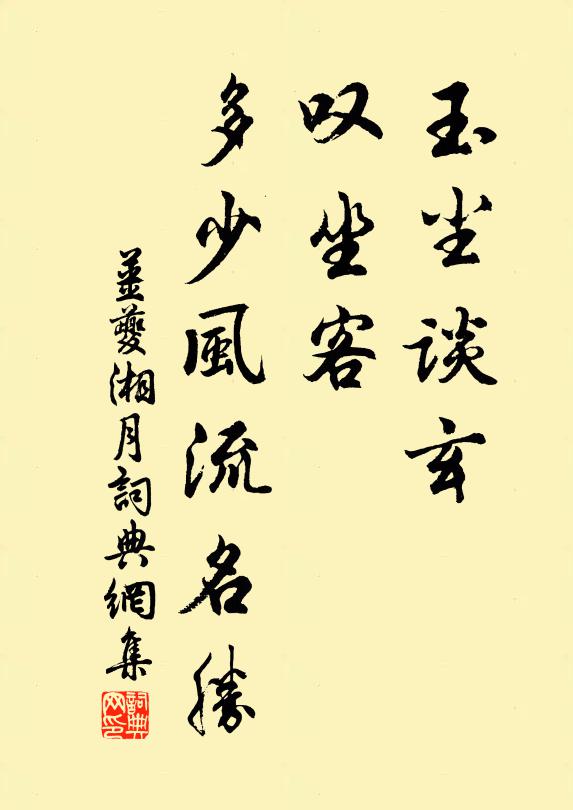 玉尘谈玄
叹坐客
多少風流名勝
姜夔湘月詞典網集
詞典网印